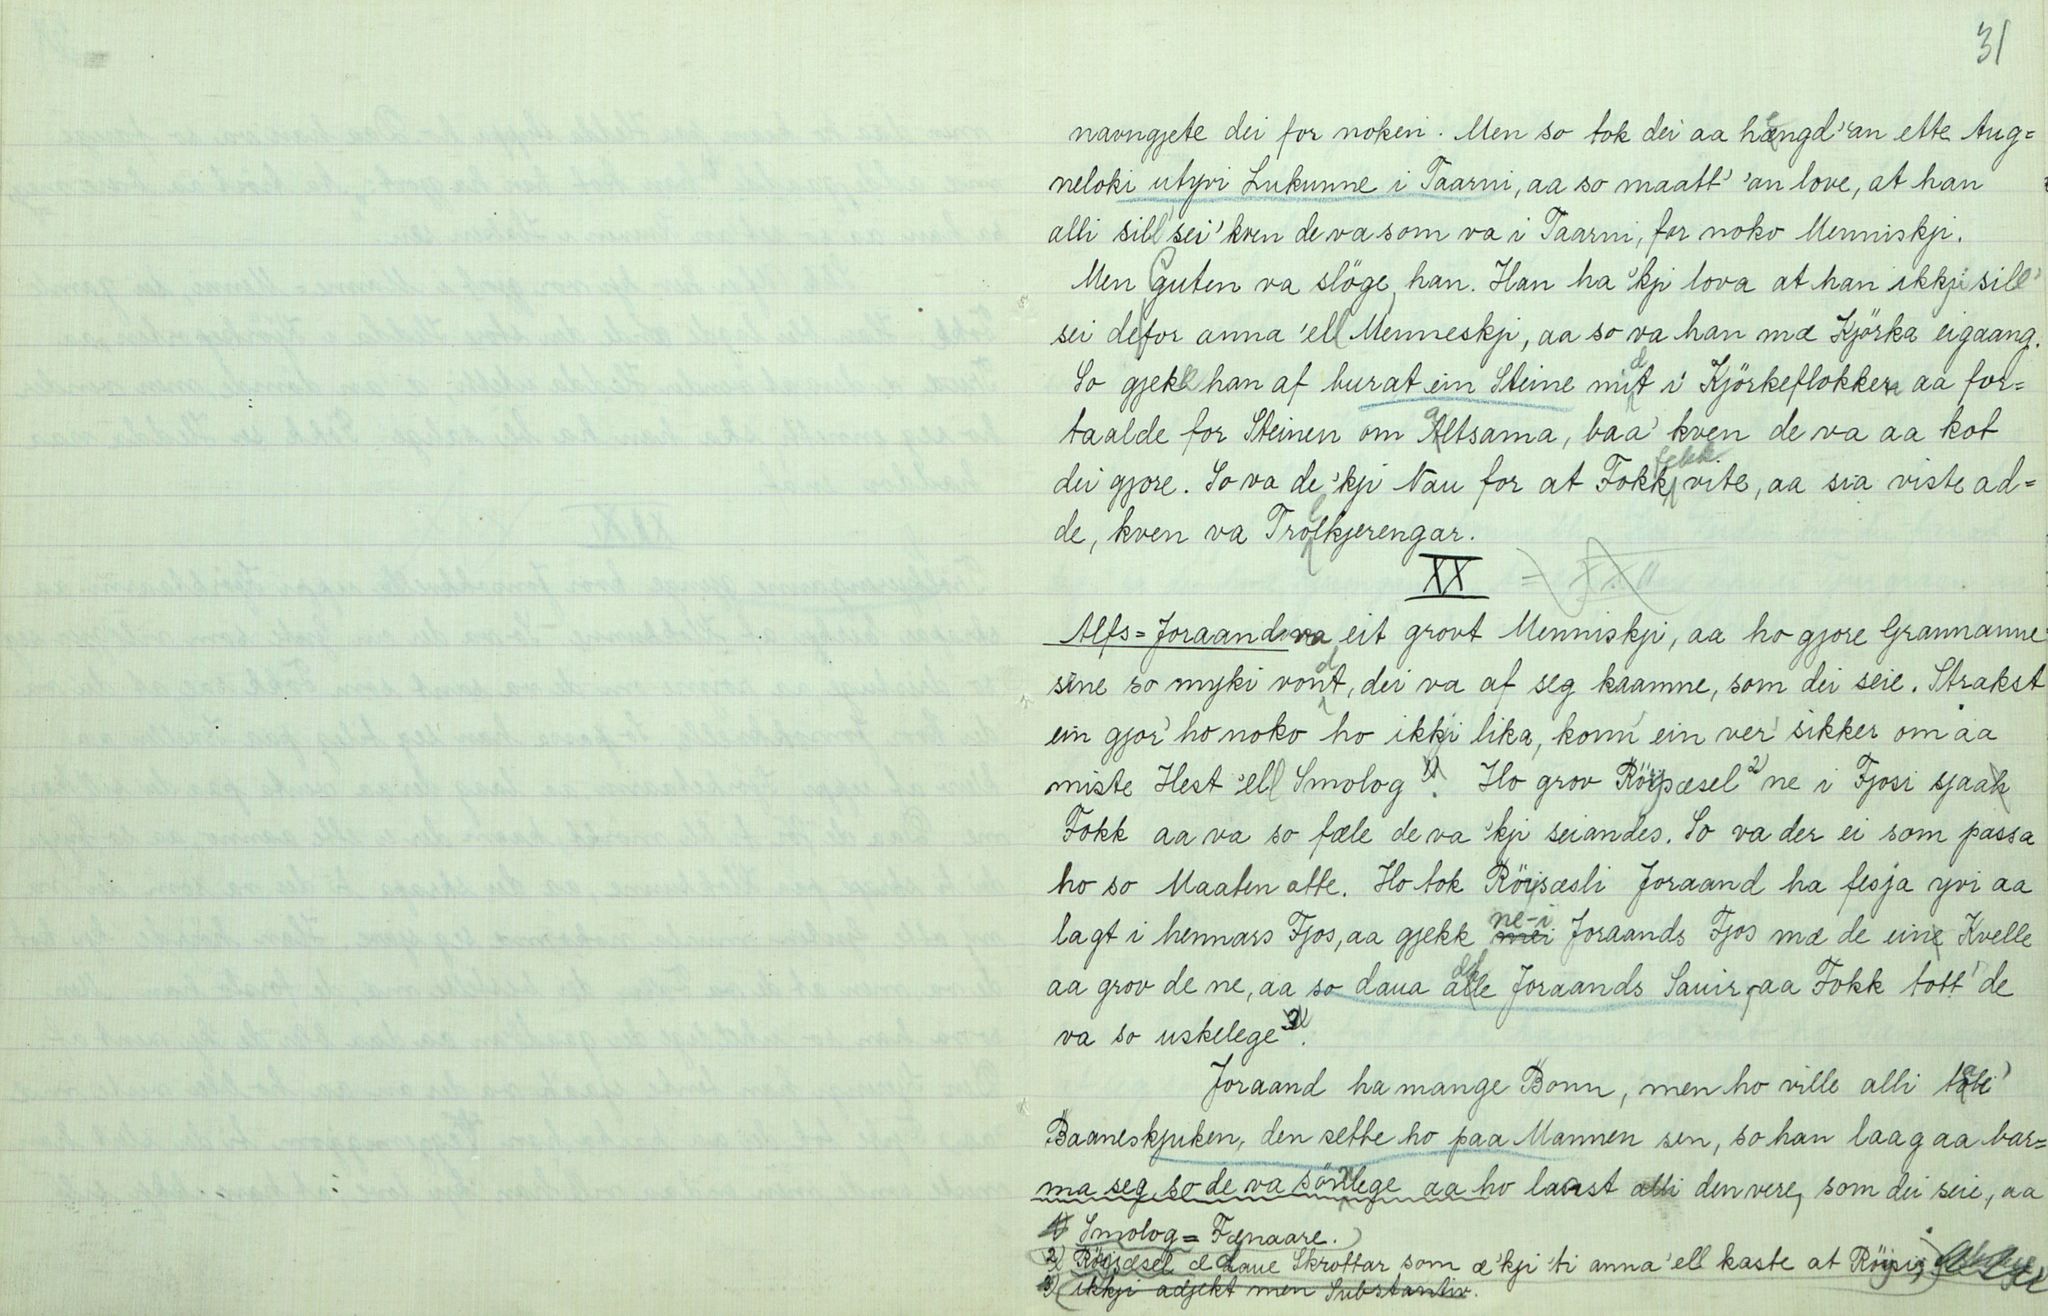 31
navngjete dei for noken. Men so tok dei aa hængd' 'an ette Aug=
neloki utyvi Lukunne i Taarni, aa so maatt' 'an love, at han
alli sill' sei' kven de va som va i Taarni, for noko Menniskji.
Men Guten va slöge, han. Han ha 'kji lova at han ikkji sill'
sei de for anna 'ell Menneskji, aa so va han mæ Kjörka eigaang.
So gjekk han af burat ein Steine midt i Kjörkeflokken aa for=
taalde for Steinen om altsama, baa' kven de va aa kot
dei gjore. So va de 'kji Nau for at Fokk fekk vite, aa sia viste ad=
de, kven va Trollkjerengar.
XX
Alfs=Joraand va eit grovt Menniskji, aa ho gjore Grannanne
sine so myki vondt, dei va af seg kaamne, som dei seie. Strakst
ein gjor' ho noko ho ikkji lika, konn' ein ver' sikker om aa
miste Hest 'ell Smolog 1). Ho grov Röysæsel 2) ne i Fjosi sjaa
Fokk aa va so fæle de va 'kji seiandes. So va der ei som passa
ho so Maaten atte. Ho tok Röysæsli Joraand ha fesja yvi aa
lagt i hennars Fjos, aa gjekk ne-i Joraands Fjos mæ de eine Kvelle
aa grov de ne, aa so daua adde Joraands Sauir, aa Fokk tott' de
va so uskelege 3).
Joraand ha mange Bonn, men ho ville alli
Baaneskjuken, den sette ho paa Mannen sen, so han laag aa bar=
ma seg, so de va sönlege aa ho laast alli den vere, som dei seie, aa
1) Smolog = Fænaare.
2) Röysæsel æ daue Skrottar som æ 'kji ti anna 'ell kaste at Röysi,
3) ikkji adjekt men Substantiv.